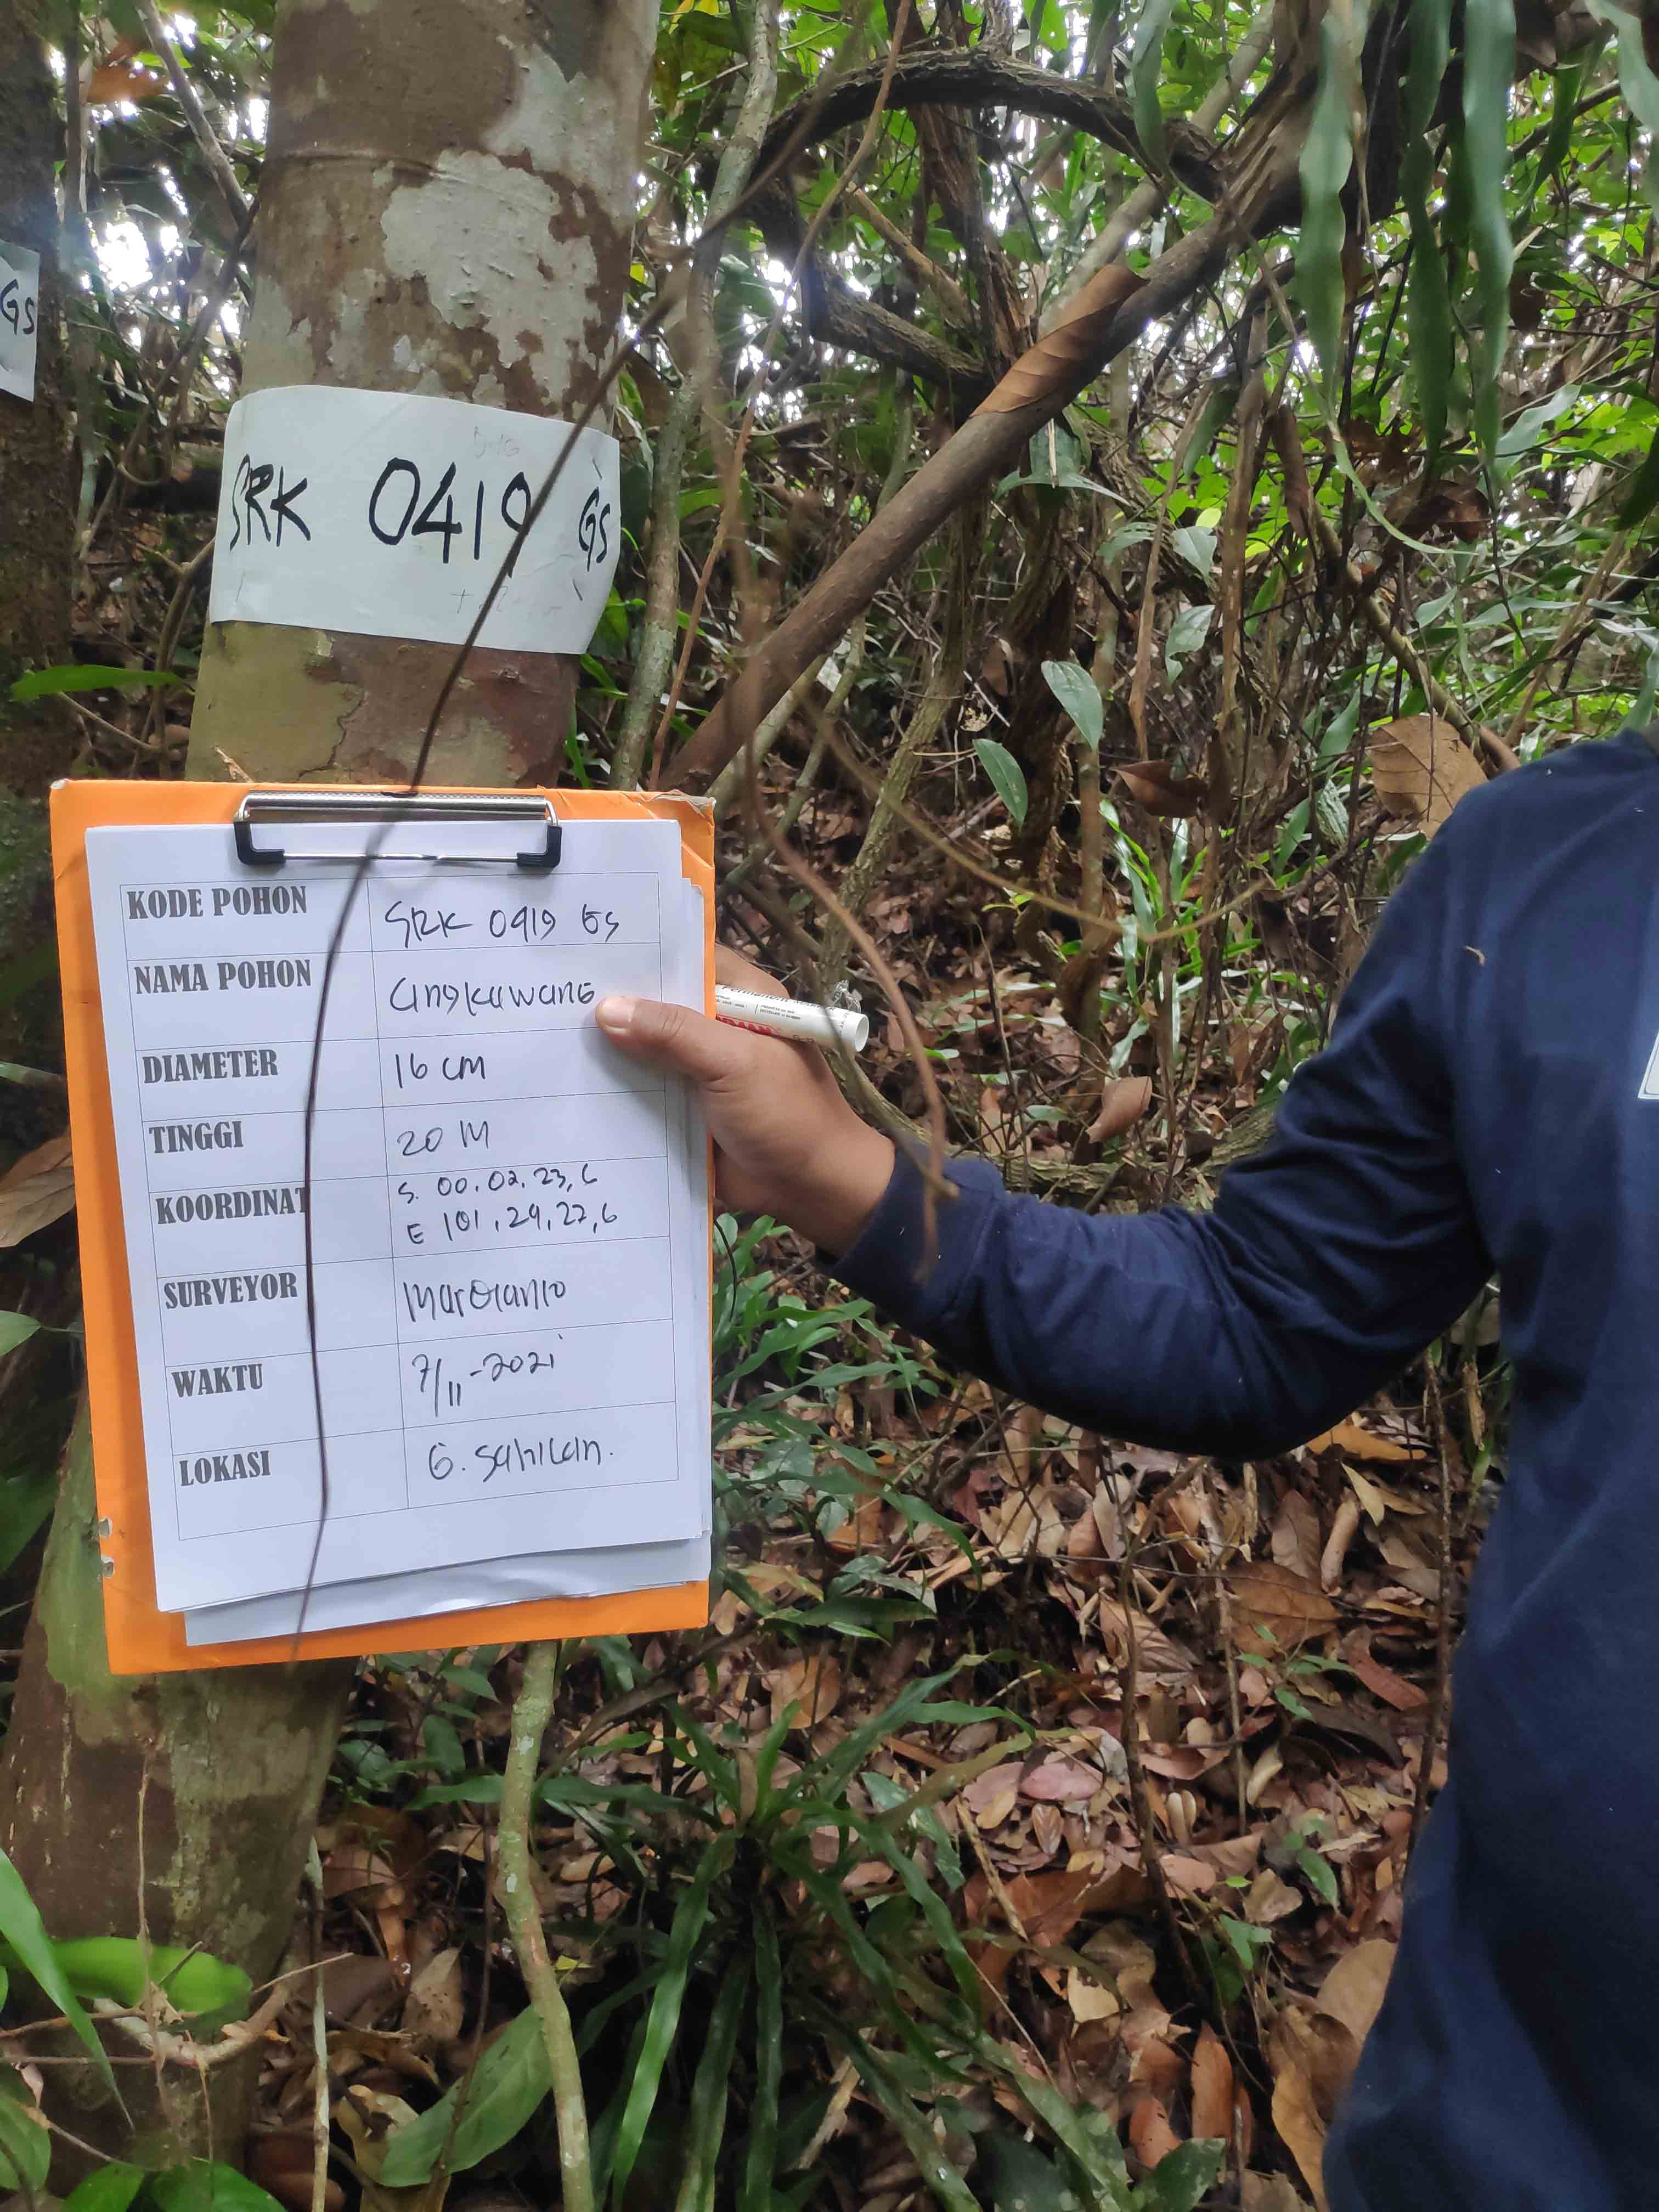 GS
SRK 0419 GS
KODE POHON SRK 0419 GS
NAMA POHON Cingkawang
DIAMETER 16 CM
TINGGI 20 M
KOORDINAT S. 00.02.23,6
E 101,24,27,6
SURVEYOR
WAKTU 7/11-2021
LOKASI G. Sahilan.